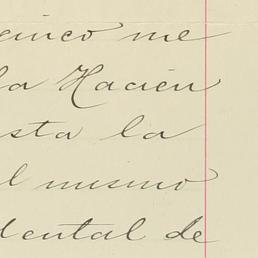 cinco me
la Hacien
sta la
l mismo
dental de